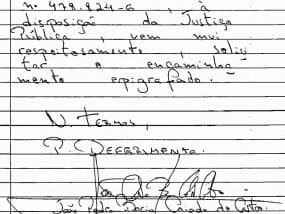 nº 478.824-6, à
disposição da Justiça
Pública, vem mui
respeitosamente, solici
tar o encaminha
mento epigrafado.
N. Termos,
P. Deferimento.
João Pedro